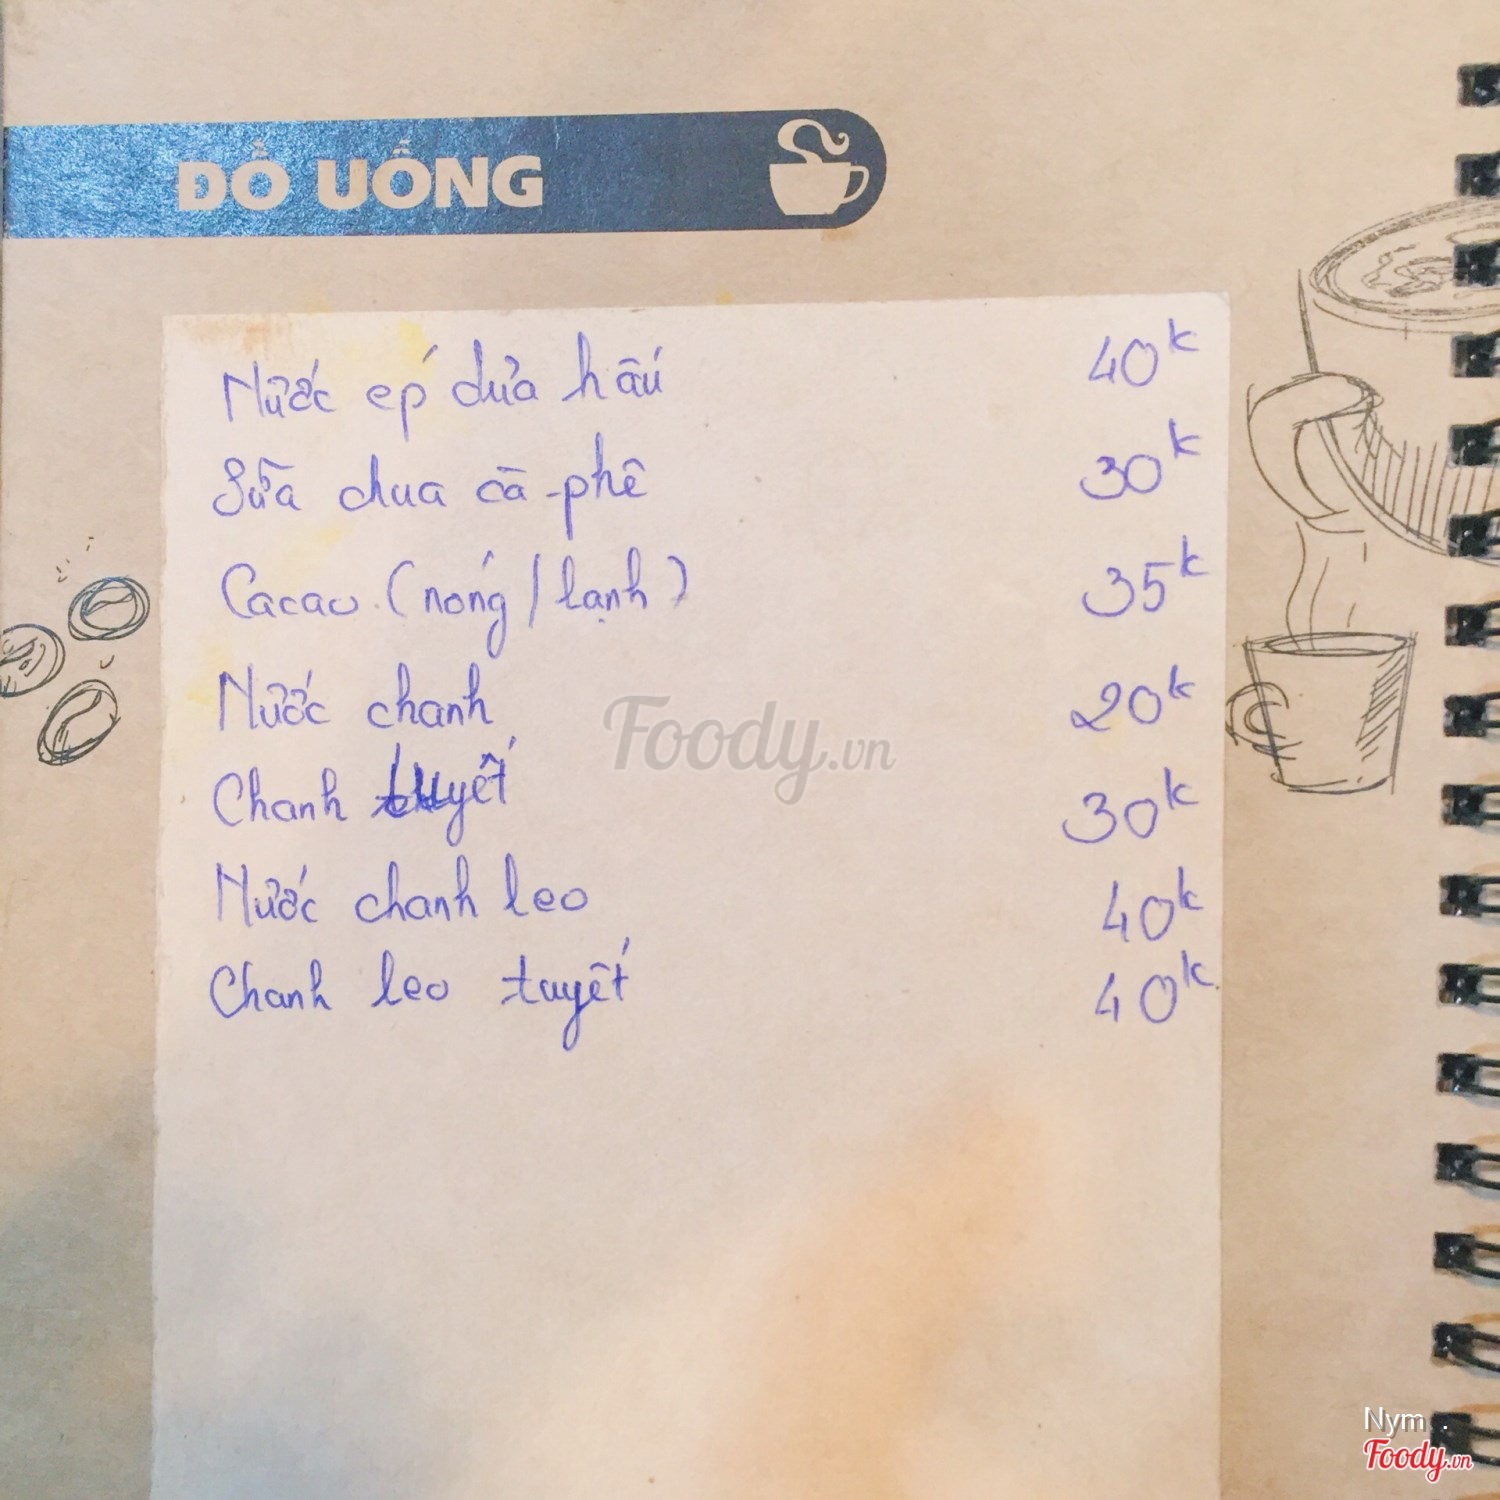 ĐỒ UỐNG
Nước ép dưa hấu 40k
Sữa chua cà phê 30k
Cacao (nóng/lạnh) 35k
Nước chanh 20k
Chanh tuyết 30k
Nước chanh leo 40k
Chanh leo tuyết 40k
Foody.vn
Nym .
Foody.vn